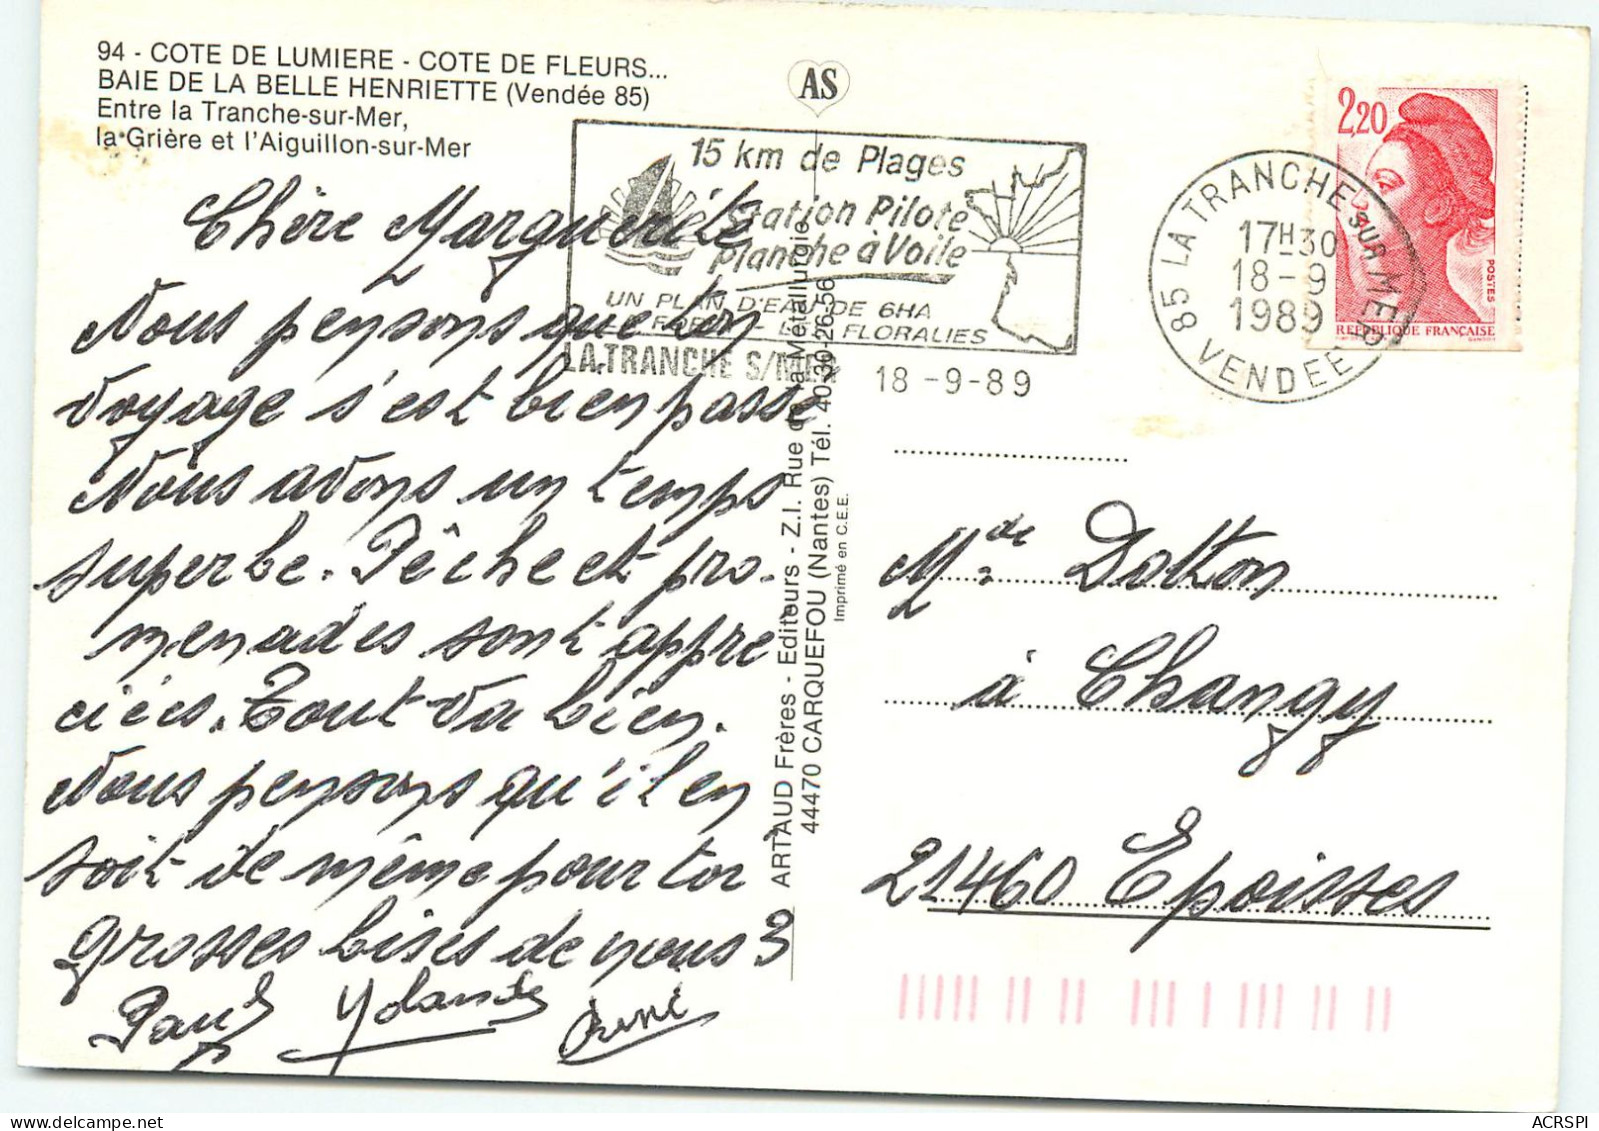 94 - COTE DE LUMIERE - COTE DE FLEURS...
BAIE DE LA BELLE HENRIETTE (Vendée 85)
Entre la Tranche-sur-Mer,
la Grière et l'Aiguillon-sur-Mer
AS
15 km de Plages
Station Pilote
Planche à Voile
UN PLAN D'EAU DE 6HA
FLORALIES
LA TRANCHE S/MER 18-9-89
85 LA TRANCHE SUR MER
17H30
18-9
1989
VENDEE
2,20
POSTES
REPUBLIQUE FRANÇAISE
Chère Marguerite
Nous pensons que ton
voyage s'est bien passé
Nous avons un temps
superbe. Pêche et pro-
menades sont appré
ciées. Tout va bien.
Nous pensons qu'il en
soit de même pour toi
grosses bises de nous 3
Paul Yolande René
ARTAUD Frères - Editeurs - Z.I. Rue de la Métallurgie
44470 CARQUEFOU (Nantes) Tél. 40-30-26-56
Imprimé en C.E.E.
Mde Dotton
à Changy
21460 Epoisses
ACRSPI